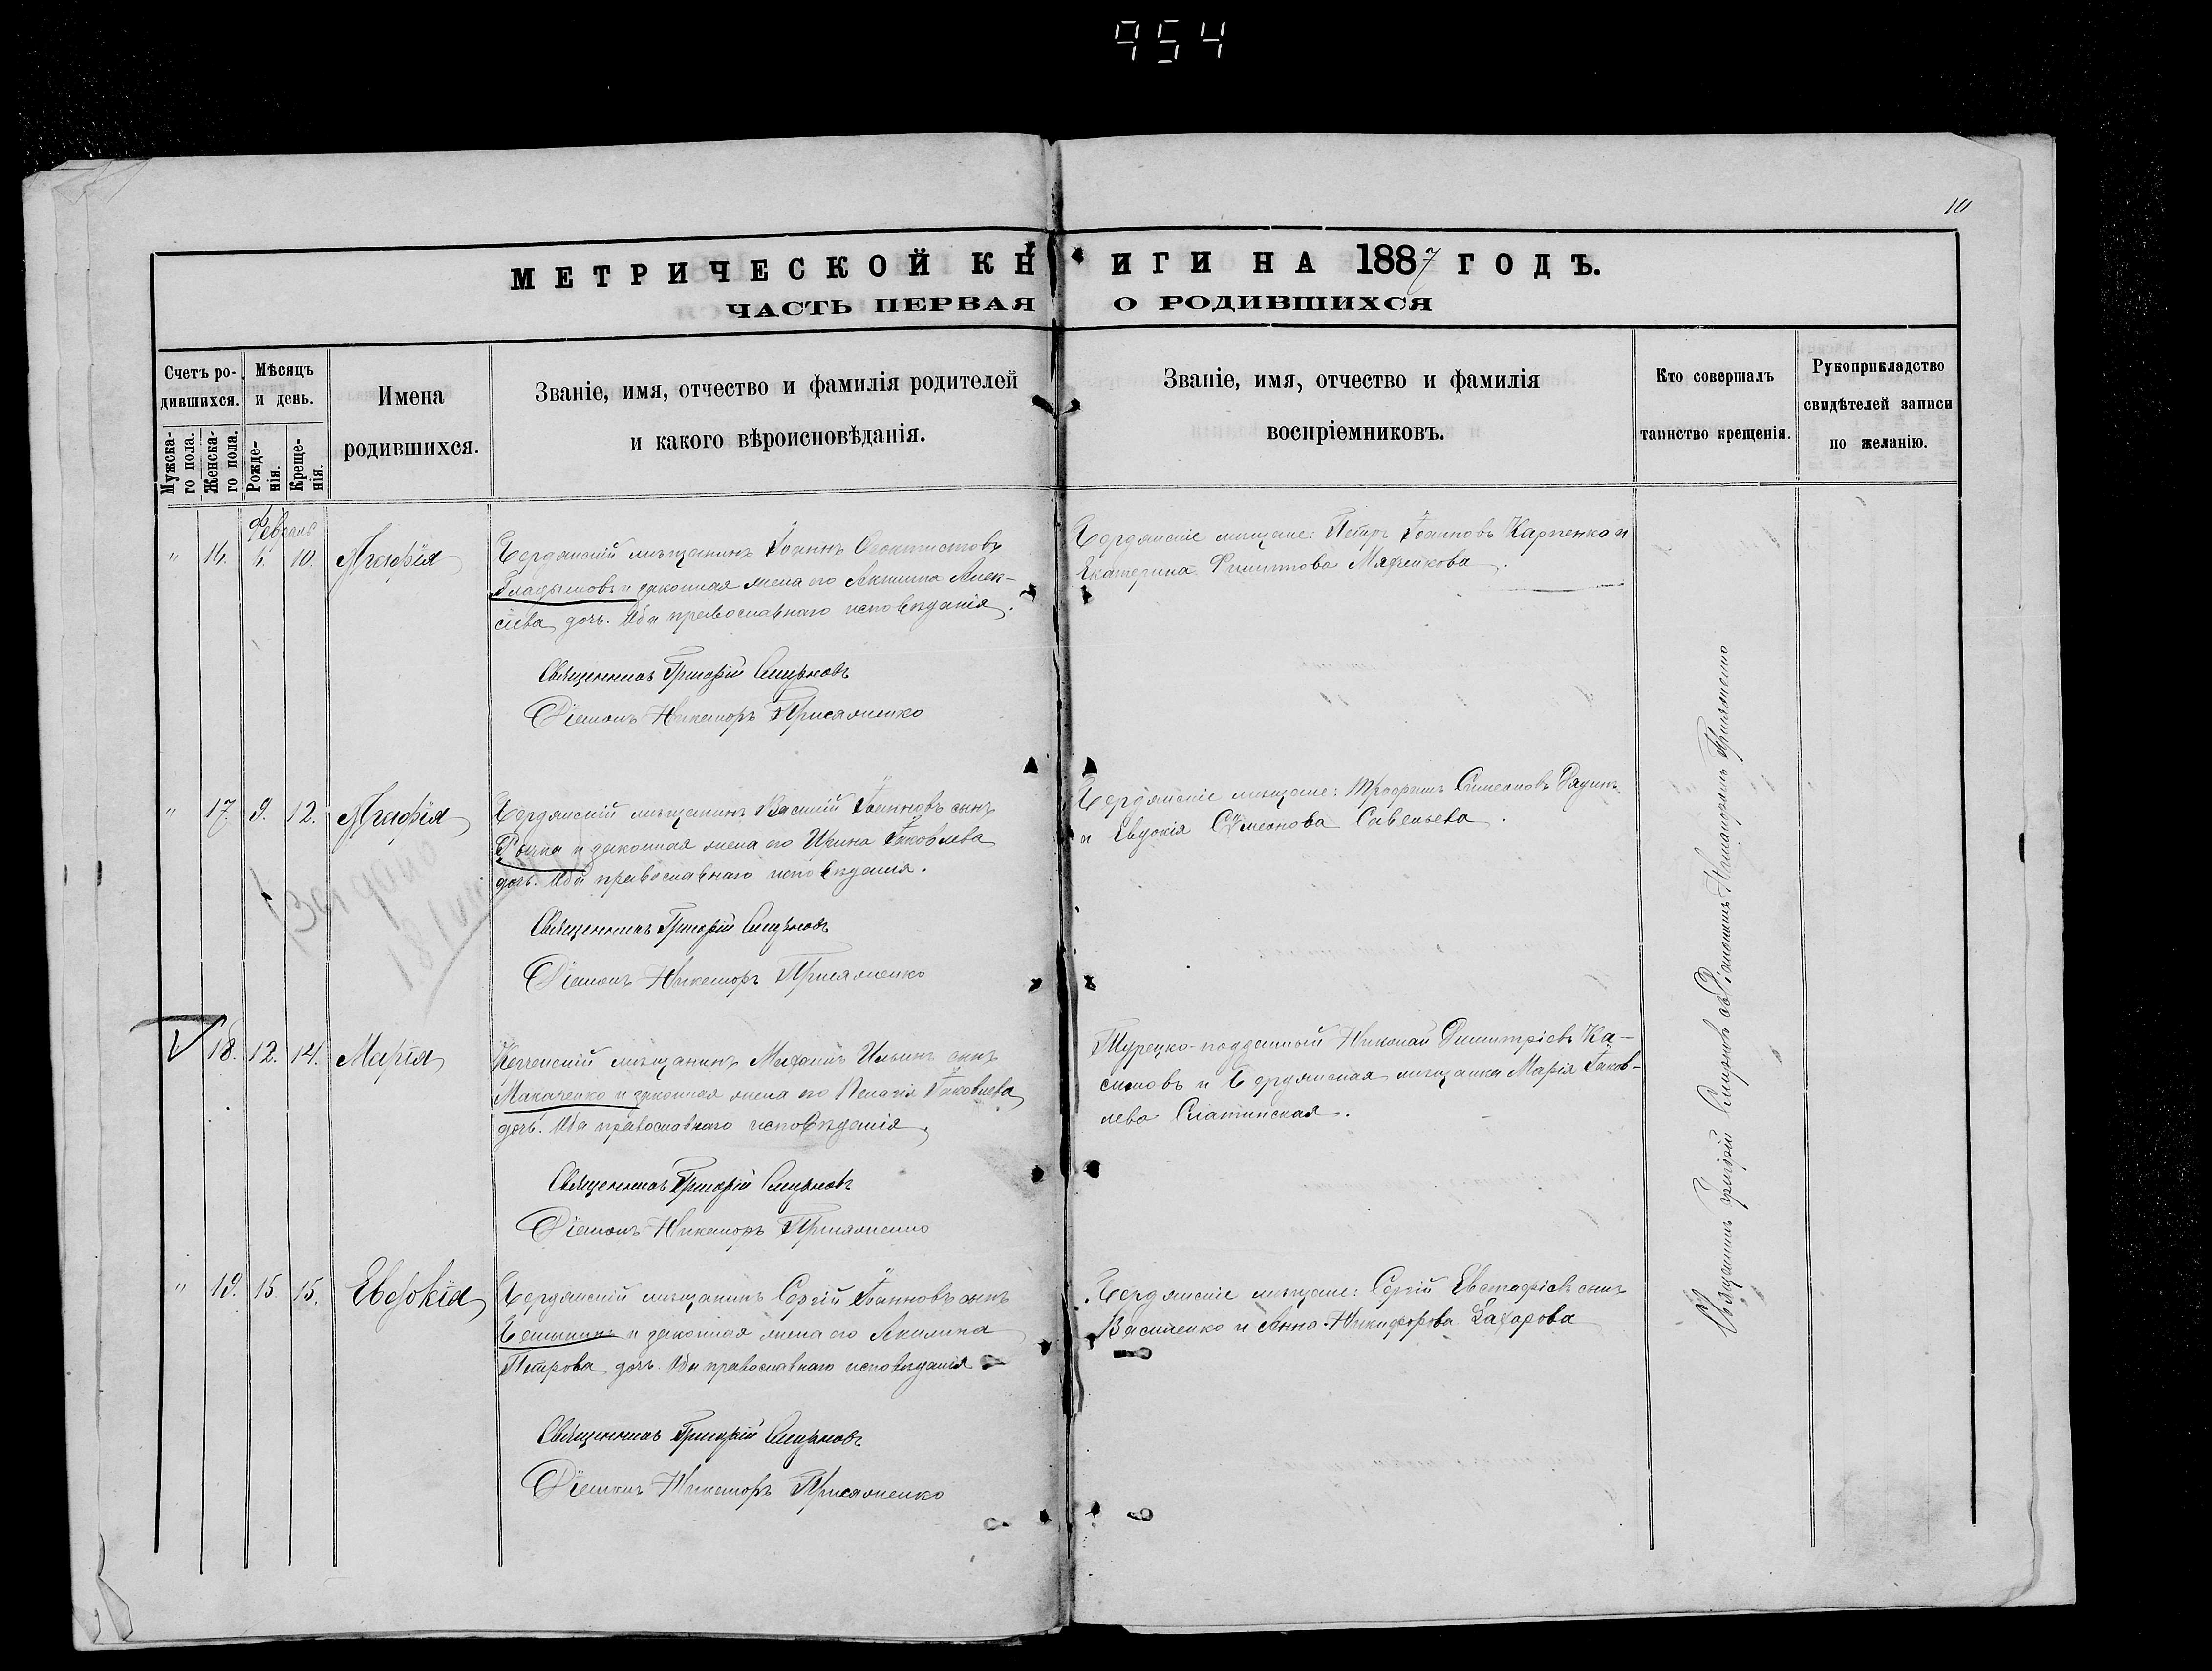 954
10
МЕТРИЧЕСКОЙ КНИГИ НА 1887 ГОДЪ.
ЧАСТЬ ПЕРВАЯ О РОДИВШИХСЯ
Счетъ ро-
дившихся.
Мужска-
го пола.
Женска-
го пола.
Мѣсяцъ
и день.
Рожде-
нія.
Креще-
нія.
Имена
родившихся.
Званіе, имя, отчество и фамилія родителей
и какого вѣроисповѣданія.
Званіе, имя, отчество и фамилія
воспріемниковъ.
Кто совершалъ
таинство крещенія.
Рукоприкладство
свидѣтелей записи
по желанію.
Февраль
" 16. 6. 10. Агафія
Бердянскій мѣщанинъ Іоаннъ Ѳеоктистовъ
и законная жена его Алек-
сіева дочь. Оба православнаго исповѣданія.
Священникъ Григорій Смирновъ
Діаконъ Никаноръ Присяженко
Бердянскіе мѣщане: Петръ Іоанновъ Карпенко и
Екатерина Филиппова
" 17. 9. 12. Агафія
Бердянскій мѣщанинъ Василій Іоанновъ сынъ
и законная жена его Ирина Іаковлева
дочь. Оба православнаго исповѣданія.
Священникъ Григорій Смирновъ
Діаконъ Никаноръ Присяженко
Бердянскіе мѣщане: Трофимъ Симеоновъ
и Евдокія Симеонова Савельева.
Выдано
18
V 18. 12. 14. Марія
Керченскій мѣщанинъ Ильинъ сынъ
Макаченко и законная жена его Пелагія Іаковлева
дочь. Оба православнаго исповѣданія.
Священникъ Григорій Смирновъ
Діаконъ Никаноръ Присяженко
Турецко-подданный Николай Димитріевъ Ка-
симовъ и Бердянская мѣщанка Марія Іаков-
лева Слатинская.
" 19. 15. 15. Евдокія
Бердянскій мѣщанинъ Сергій Іоанновъ сынъ
и законная жена его Акилина
Петрова дочь. Оба православнаго исповѣданія
Священникъ Григорій Смирновъ
Діаконъ Никаноръ Присяженко
Бердянскіе мѣщане: Сергій Евстафіевъ сынъ
Василенко и Анна Никифорова Захарова
Священникъ Григорій Смирновъ съ Діакономъ Никаноромъ Присяженко